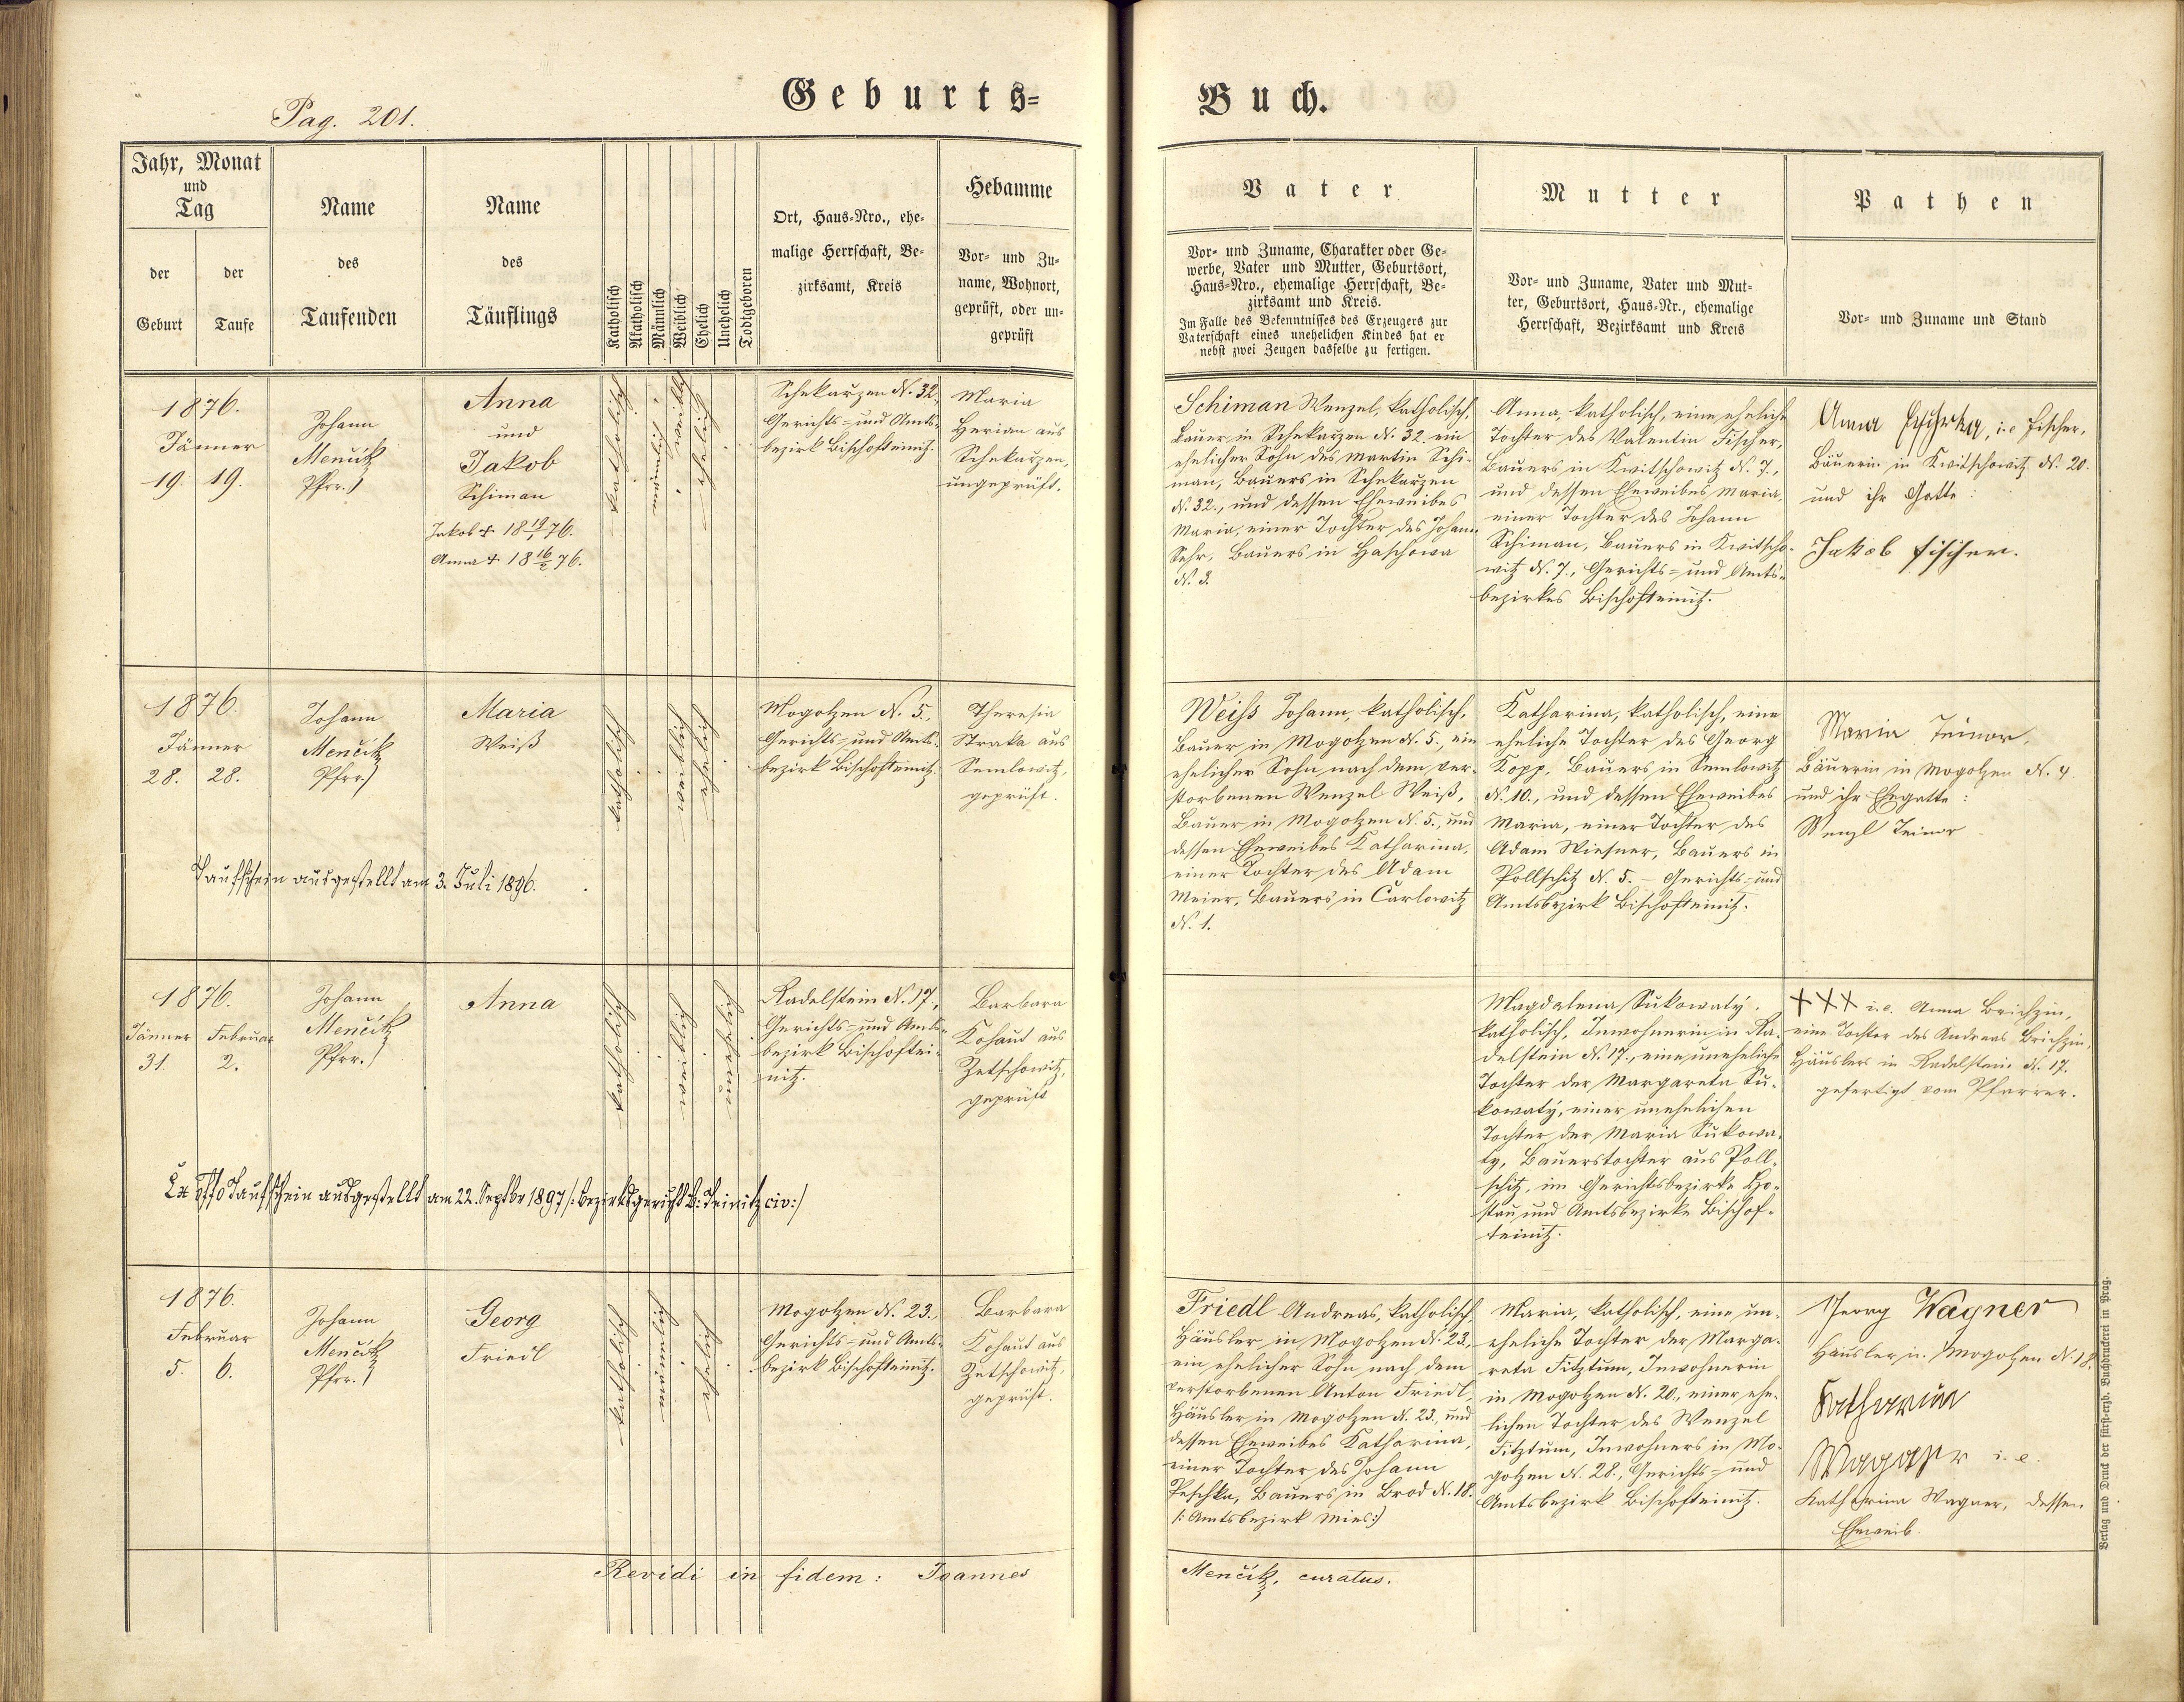 Pag. 201.
Geburts=
Buch.
Jahr, Monat
und
Tag
der
Geburt
der
Taufe
Name
des
Taufenden
Name
des
Täuflings
Katholisch
Akatholisch
Männlich
Weiblich
Ehelich
Unehelich
Todtgeboren
Ort, Haus-Nro., ehe-
malige Herrschaft, Be-
zirksamt, Kreis
Hebamme
Vor- und Zu-
name, Wohnort,
geprüft, oder un-
geprüft
Vater
Vor- und Zuname, Charakter oder Ge-
werbe, Vater und Mutter, Geburtsort,
Haus-Nro., ehemalige Herrschaft, Be-
zirksamt und Kreis.
Im Falle des Bekenntnisses des Erzeugers zur
Vaterschaft eines unehelichen Kindes hat er
nebst zwei Zeugen dasselbe zu fertigen.
Mutter
Vor- und Zuname, Vater und Mut-
ter, Geburtsort, Haus-Nr., ehemalige
Herrschaft, Bezirksamt und Kreis
Pathen
Vor- und Zuname und Stand
1876.
Jänner
19. 19.
Johann
Menčik
Pfrr.
Anna
und
Jakob
Schiman
Jakob + 18 19/1 76.
Anna + 18 16/2 76.
katholisch
männlich
weiblich
ehelich
Schekarzen N. 32,
Gerichts- und Amts-
bezirk Bischofteinitz.
Maria
Herian aus
Schekarzen,
ungeprüft.
Schiman Wenzel, katholisch,
Bauer in Schekarzen N. 32. ein
ehelicher Sohn des Martin Schi-
man, Bauers in Schekarzen
N. 32., und dessen Eheweibes
Maria, einer Tochter des Johann
Sehr, Bauers in Haschowa
N. 3.
Anna, katholisch, eine eheliche
Tochter des Valentin Fischer,
Bauers in Kwitschowitz N. 7,
und dessen Eheweibes Maria,
einer Tochter des Johann
Schiman, Bauers in Kwitscho-
witz N. 7., Gerichts- und Amts-
bezirkes Bischofteinitz.
Anna i. e Fischer,
Bäuerin in Kwitschowitz N. 20.
und ihr Gatte:
Jakob Fischer.
1876.
Jänner
28. 28.
Johann
Menčik
Pfrr.
Maria
Weiß
katholisch
weiblich
ehelich
Mogolzen N. 5.,
Gerichts- und Amts-
bezirk Bischofteinitz.
Theresia
Straka aus
Semlowitz,
geprüft.
Weiss Johann, katholisch,
Bauer in Mogolzen N. 5., ein
ehelicher Sohn nach dem ver-
storbenen Wenzel Weiß,
Bauer in Mogolzen N. 5., und
dessen Eheweibes Katharina,
einer Tochter des Adam
Meier, Bauers in Carlowitz
N. 1.
Katharina, katholisch, eine
eheliche Tochter des Georg
Kopp, Bauers in Semlowitz
N. 10., und dessen Eheweibes
Maria, einer Tochter des
Adam Wiesner, Bauers in
Pollschitz N. 5. - Gerichts- und
Amtsbezirk Bischofteinitz.
Maria Teinor,
Bäuerin in Mogolzen N. 4.
und ihr Ehegatte:
Wenzl Teinor
Taufschein ausgestellt am 3. Juli 1896.
1876.
Jänner Februar
31. 2.
Johann
Menčik
Pfrr.
Anna
katholisch
weiblich
unehelich
Radelstein N. 17,
Gerichts- und Amts-
bezirk Bischoftei-
nitz.
Barbara
Kohaut aus
Zetschowitz,
geprüft
Magdalena Sukowatý,
katholisch, Inwohnerin in Ra-
delstein N. 17., eine uneheliche
Tochter der Margareta Su-
kowatý, einer unehelichen
Tochter der Maria Sukowa-
ty, Bauerstochter aus Poll-
schitz, im Gerichtsbezirke Ho-
stau und Amtsbezirke Bischof-
teinitz.
+++ i. e. Anna Brichzin,
eine Tochter des Andreas Brichzin,
Häuslers in Radelstein N. 17.
gefertigt vom Pfarrer.
Ex offo Taufschein ausgestellt am 22. Septbr 1897 /: Bezirksgericht B: Teinitz civ:/
1876.
Februar
5. 6.
Johann
Menčik
Pfrr.
Georg
Friedl
katholisch
männlich
ehelich
Mogolzen N. 23.,
Gerichts- und Amts-
bezirk Bischofteinitz.
Barbara
Kohaut aus
Zetschowitz,
geprüft.
Friedl Andreas, katholisch,
Häusler in Mogolzen N. 23,
ein ehelicher Sohn nach dem
verstorbenen Anton Friedl,
Häusler in Mogolzen N. 23., und
dessen Eheweibes Katharina,
einer Tochter des Johann
Peschka, Bauers in Brod N. 18.
/: Amtsbezirk Mies:/
Maria, katholisch, eine un-
eheliche Tochter der Marga-
reta Fitztum, Inwohnerin
in Mogolzen N. 20., einer ehe-
lichen Tochter des Wenzel
Fitztum, Inwohners in Mo-
golzen N. 28., Gerichts- und
Amtsbezirk Bischofteinitz.
Georg Wagner
Häusler in Mogolzen N. 18.
Katharina
i. e.
Katharina Wagner, dessen
Eheweib.
Revidi in fidem: Joannes Menčik, curatus.
Verlag und Druck der fürst-erzb. Buchdruckerei in Prag.